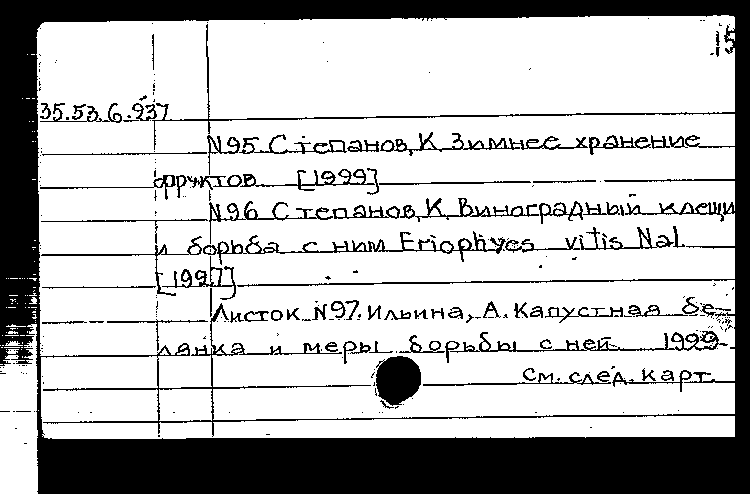 15
35.53.6.937
N95 Степанов, К. Зимнее хранение
фруктов [1999]
N96 Степанов, К. Виноградный клещи
и борьба с ним Eriophyes vitis Nal.
[1997]
Листок N97. Ильина, А. Капустная бе-
лянка и меры борьбы с ней 1999
См. след. карт.